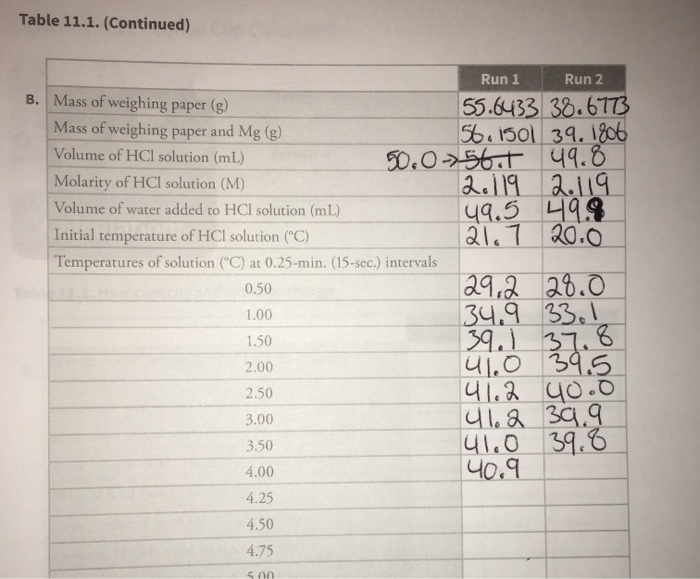 Table 11.1. (Continued)
Run 1 Run 2
B. Mass of weighing paper (g) 55.6433 38.6773
Mass of weighing paper and Mg (g) 56.1501 39.1806
Volume of HCl solution (mL) 50.0→ 56.1 49.8
Molarity of HCl solution (M) 2.119 2.119
Volume of water added to HCl solution (mL) 49.5 49.9
Initial temperature of HCl solution (°C) 21.7 20.0
Temperatures of solution (°C) at 0.25-min. (15-sec.) intervals
0.50 29.2 28.0
1.00 34.9 33.1
1.50 39.1 37.8
2.00 41.0 39.5
2.50 41.2 40.0
3.00 41.2 39.9
3.50 41.0 39.8
4.00 40.9
4.25
4.50
4.75
5.00